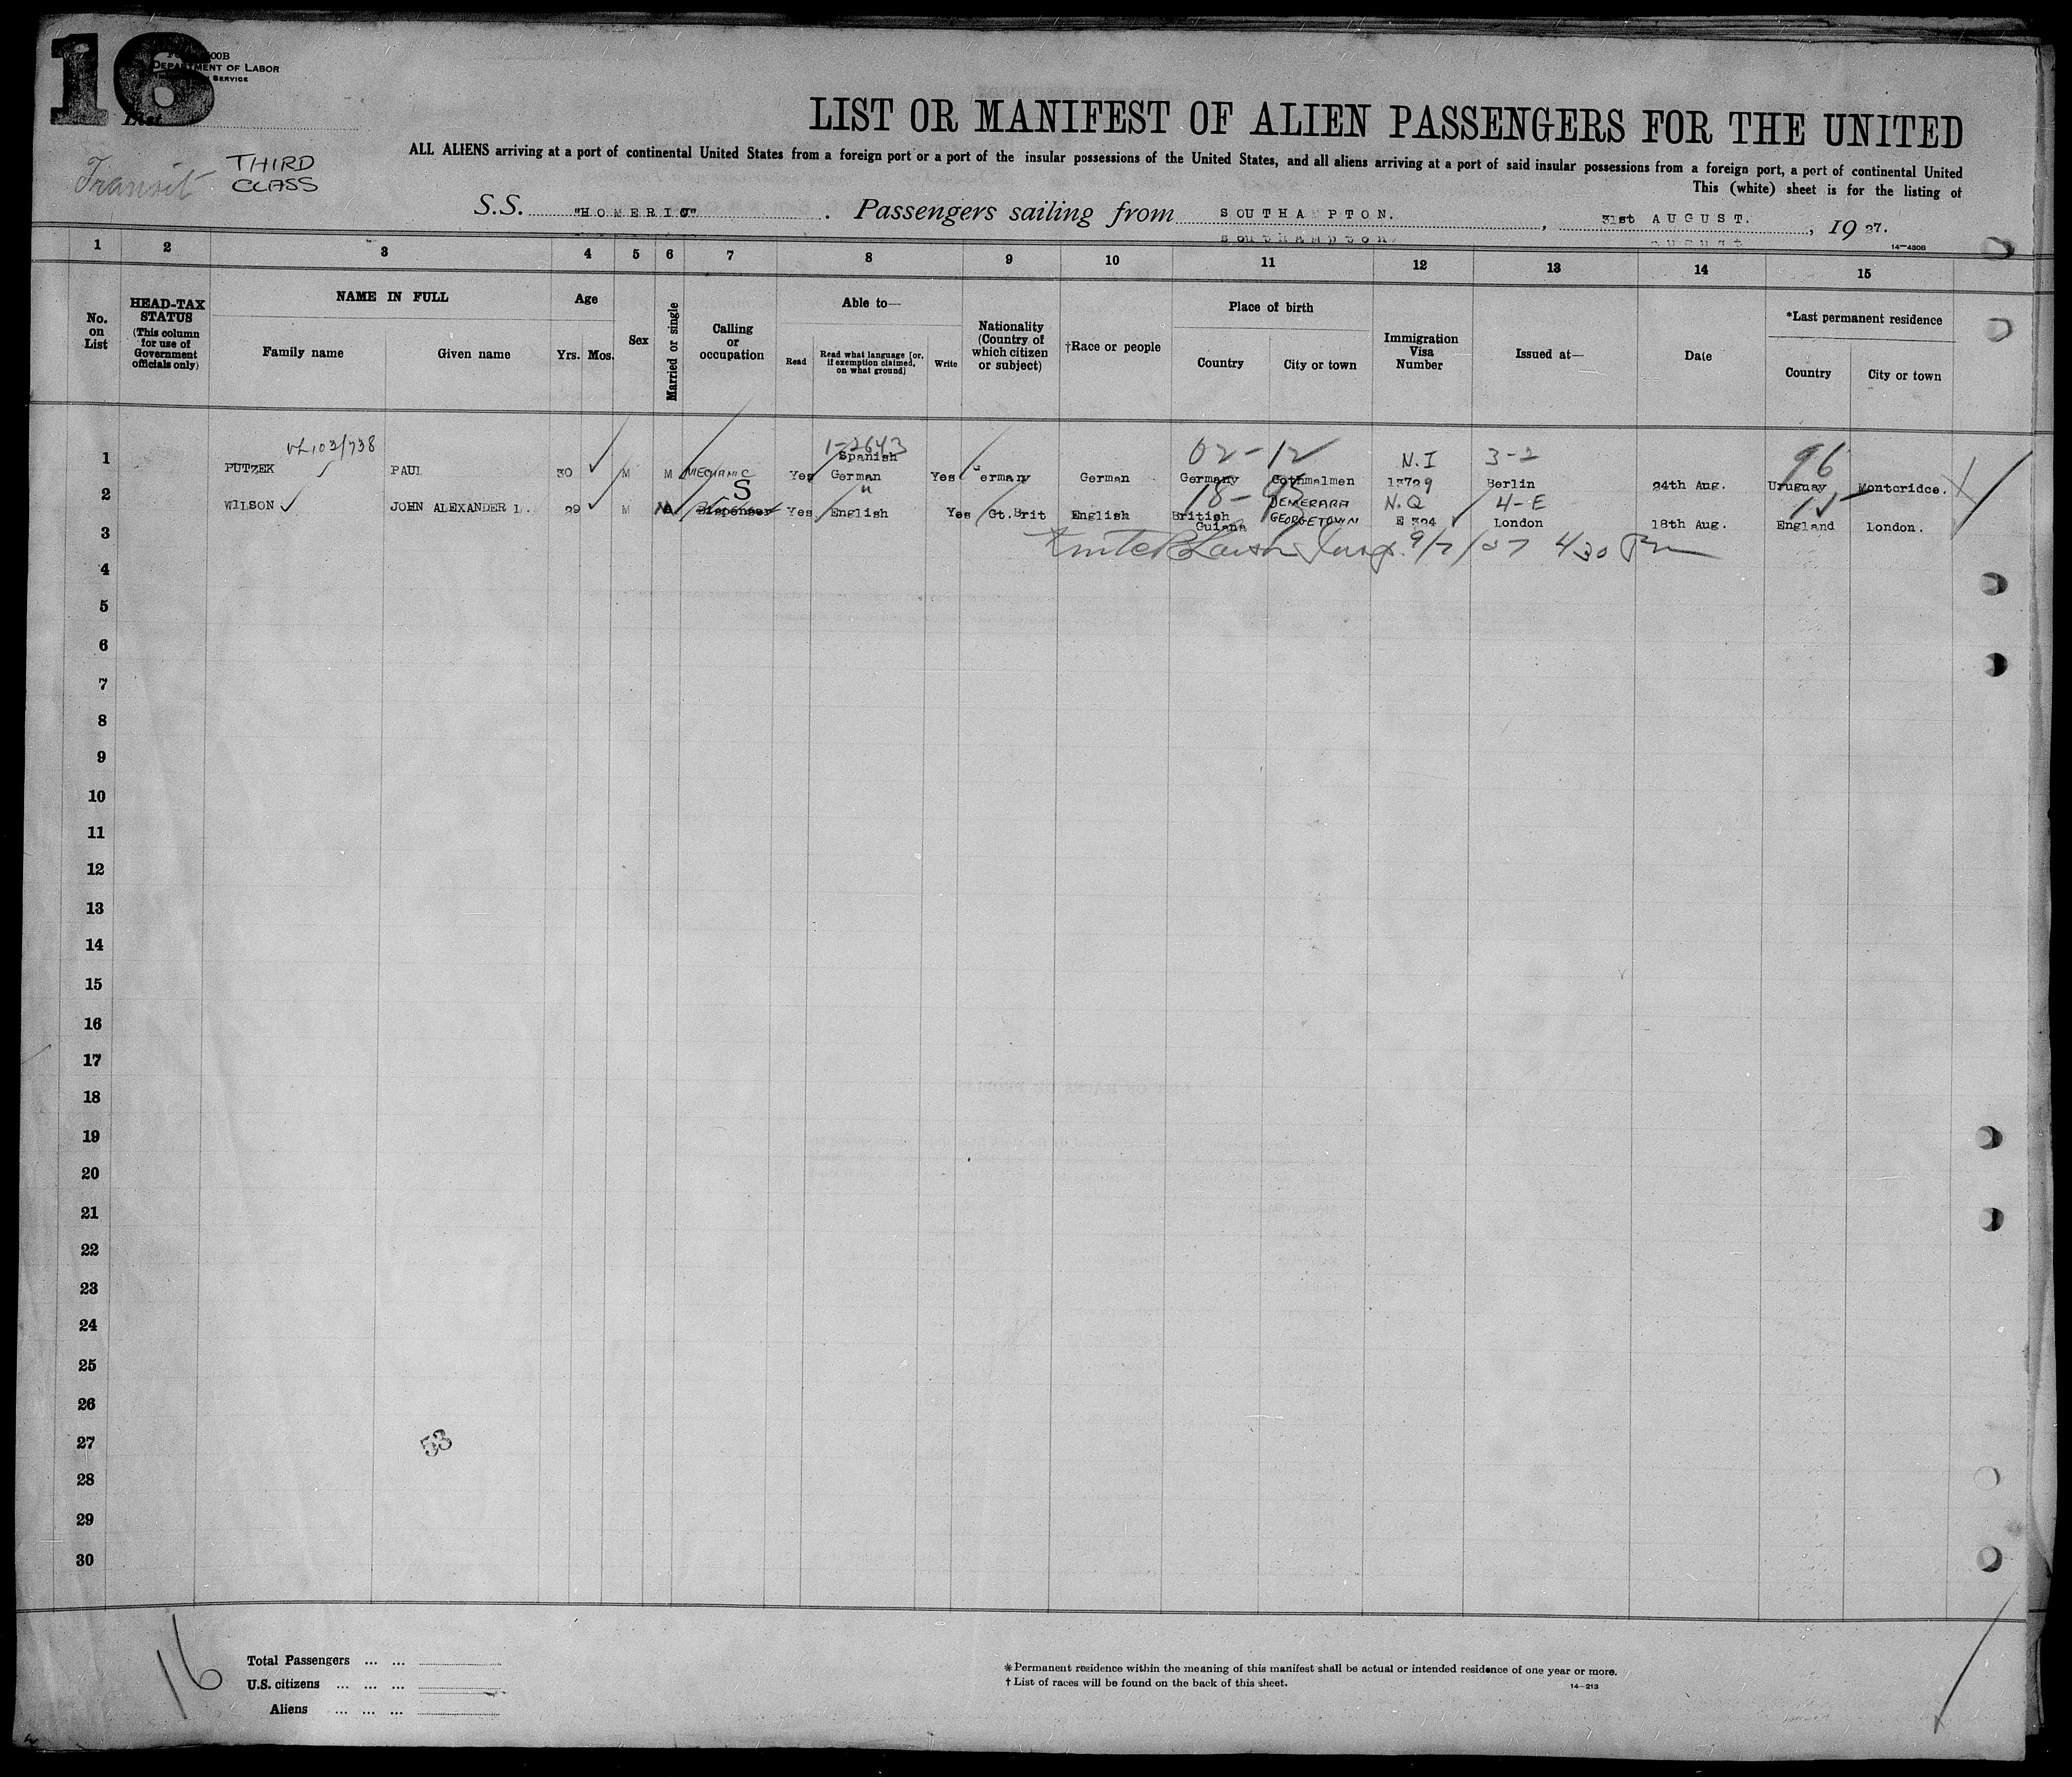 16
00B
DEPARTMENT OF LABOR
SERVICE
List
LIST OR MANIFEST OF ALIEN PASSENGERS FOR THE UNITED
ALL ALIENS arriving at a port of continental United States from a foreign port or a port of the insular possessions of the United States, and all aliens arriving at a port of said insular possessions from a foreign port, a port of continental United
This (white) sheet is for the listing of
Transit THIRD CLASS
S.S. "HOMERIC" . Passengers sailing from SOUTHAMPTON. , 31st AUGUST. , 19 27.
14-430B
1 2 3 4 5 6 7 8 9 10 11 12 13 14 15
No. on List
HEAD-TAX STATUS (This column for use of Government officials only)
NAME IN FULL
Family name Given name
Age
Yrs. Mos.
Sex
Married or single
Calling or occupation
Able to—
Read Read what language [or, if exemption claimed, on what ground] Write
Nationality (Country of which citizen or subject)
†Race or people
Place of birth
Country City or town
Immigration Visa Number
Issued at—
Date
*Last permanent residence
Country City or town
103/738 1-2643 02-12 N.I 3-2 96
1 PUTZEK PAUL 30 M M MECHANIC Yes Spanish German Yes Germany German Germany Gothmalmen 13729 Berlin 24th Aug. Uruguay Montoridce.
S " 18-93 N.Q 4-E 15
2 WILSON JOHN ALEXANDER L. 29 M Dispenser Yes English Yes Gt.Brit English British Guiana DEMERARA GEORGETOWN E 324 London 18th Aug. England London.
3 9/7/27 4 30 Pm
4
5
6
7
8
9
10
11
12
13
14
15
16
17
18
19
20
21
22
23
24
25
26
27 53
28
29
30
16
Total Passengers ... ...
U.S. citizens ... ... ...
Aliens ... ... ...
* Permanent residence within the meaning of this manifest shall be actual or intended residence of one year or more.
† List of races will be found on the back of this sheet.
14-213